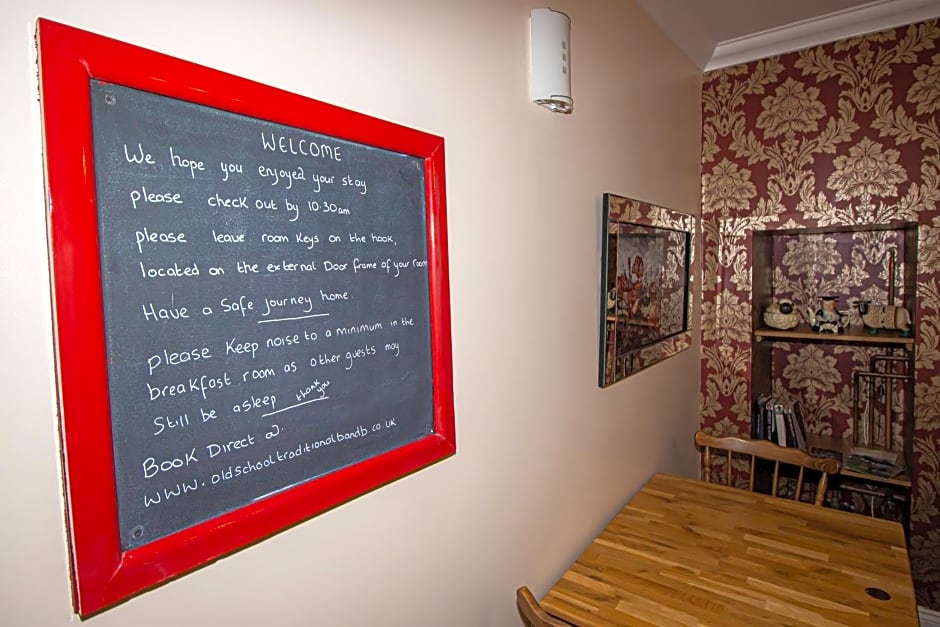 WELCOME
We hope you enjoyed your stay
please check out by 10.30am
please leave room Keys on the hook,
located on the external Door frame of your room
Have a Safe journey home.
please Keep noise to a minimum in the
breakfast room as other guests may
Still be asleep thank you
Book Direct @.
www.oldschooltraditionalbandb.co.uk